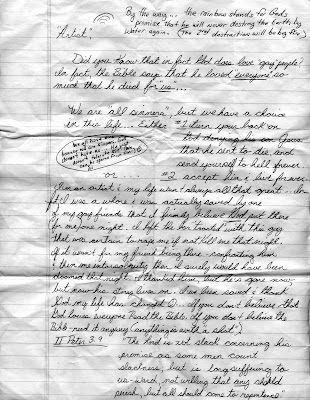 By the way... the rainbow stands to God's
promise that he will never destroy the Earth by
water again. (The 2nd destruction will be by fire.)
"Artist",
Did you know that in fact God does love "gay people"?
In fact, the Bible says that he loved "everyone" so
much that he died for "us...
We are "all sinners", but we have a choice
in this life... Either #1 turn your back on
God denying his son Jesus
that he sent to die, and
send yourself to hell forever
or ..... #2 accept him & live forever.
I'm an artist & my life wasn't always all that great... In
fact I was a whore & was actually saved by one
of my gay friends that I firmly believe God put there
for me one night. I left the bar loaded with this guy
that was certain to rape me if not kill me that night.
if it wasn't for my friend being there - confronting him
& then me interrogating then I surely would have been
doomed that night. I thanked him, but he's gone now,
but now his story lives on. I've been saved & thank
God my life has changed. If you don't believe that
God loves everyone Read the Bible. If you don't believe the
Bible - read it anyway (anything is worth a shot.)
II Peter 3:9 "The Lord is not slack concerning his
promise as some men count
slackness, but is long suffering to
us-ward, not willing that any should
perish, but all should come to repentance"